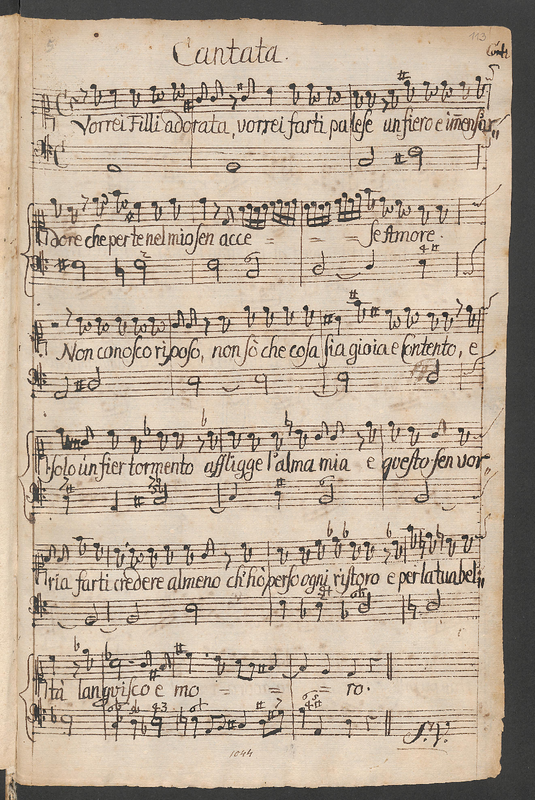 113
Cantata.
Conti
Vorrei Filli adorata, vorrei farti palese un fiero e im̃enso ar„
dore che per te nel mio sen acce = = = se Amore.
Non conosco riposo, non sò che cosa sia gioia e contento, e
solo un fier tormento affligge l'alma mia e questo sen vor„
ria farti credere almeno ch'hò perso ogni ristoro e per la tua bel„
tà languisco e mo = = = ro.
S. V.
1044